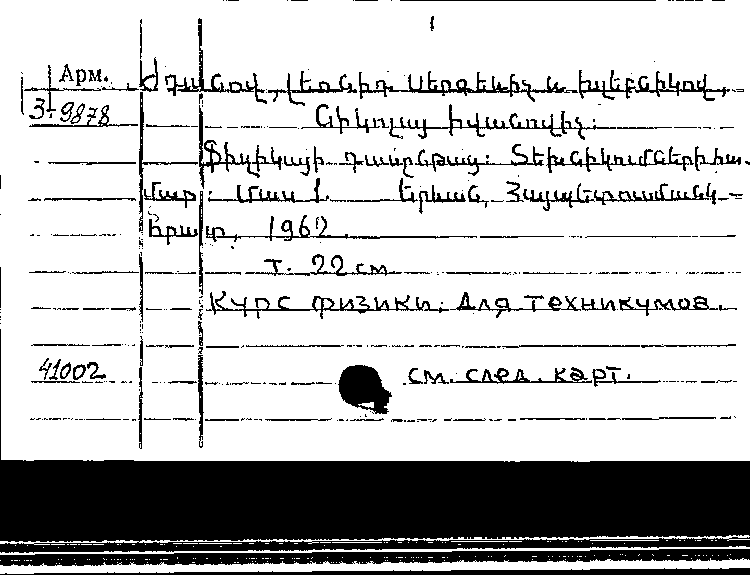 1
Арм. Ժդանով, Լեոնիդ Սերգեևիչ և Խլեբնիկով,
3-9878 Նիկոլայ Իվանովիչ:
Ֆիզիկայի դասընթաց: Տեխնիկումների հա-
մար: Մաս 1. Երևան, Հայպետուսմանկ-
հրատ, 1962.
т. 22 см
Курс физики. Для техникумов.
41002 см. след. карт.